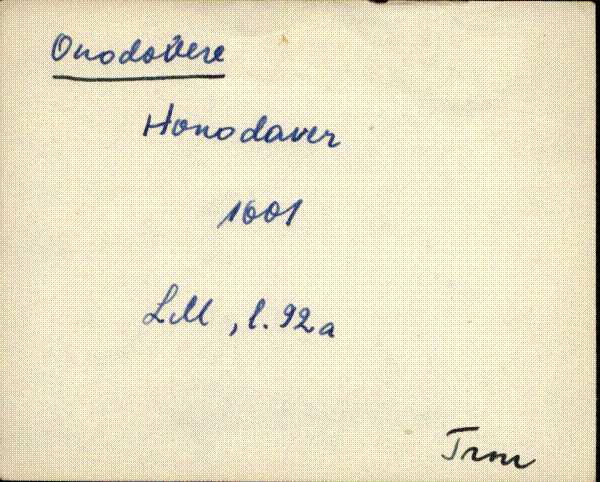 Onodovere
Honodaver
1601
LM, l. 92a
Trm